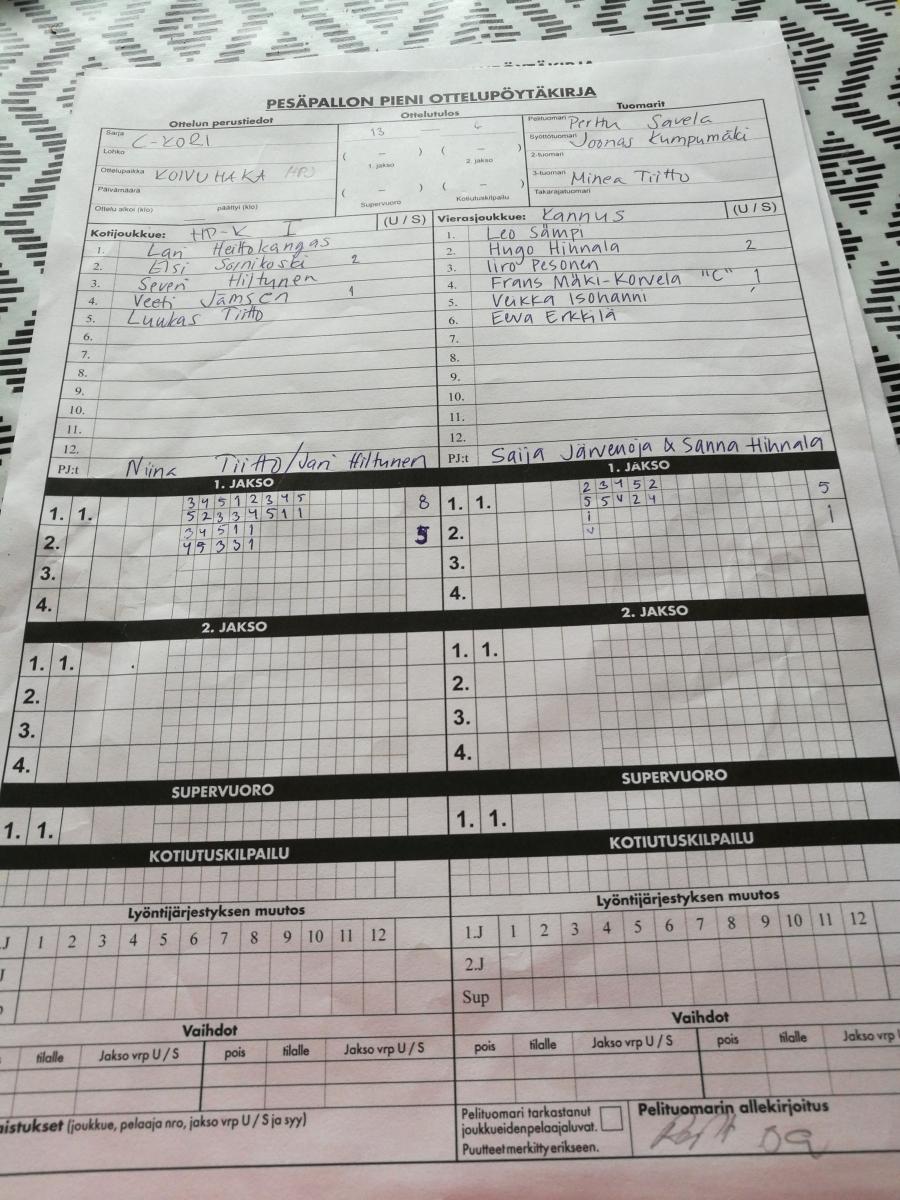 PESÄPALLON PIENI OTTELUPÖYTÄKIRJA
Ottelun perustiedot
Ottelutulos
Tuomarit
Sarja C-KORI
Lohko
Ottelupaikka KOIVUHAKA
Päivämäärä
Ottelu alkoi (klo) päättyi (klo)
13
( – ) ( – )
1. jakso 2. jakso
( – ) ( – )
Supervuoro Kotiutuskilpailu
Pelituomari Perttu Savela
Syöttötuomari Joonas Kumpumäki
2-tuomari
3-tuomari Minea Tiitto
Takarajatuomari
Kotijoukkue: HP-K I (U / S)
1. Lari Heittokangas
2. Elsi Sornikoski 2
3. Severi Hiltunen
4. Veeti Jämsen 1
5. Luukas Tiitto
6.
7.
8.
9.
10.
11.
12.
PJ:t Niina Tiitto/Jari Hiltunen
Vierasjoukkue: Kannus (U / S)
1. Leo Sämpi
2. Hugo Hihnala 2
3. Iiro Pesonen
4. Frans Mäki-Korvela "C" 1
5. Veikka Isohanni
6. Eeva Erkkilä
7.
8.
9.
10.
11.
12.
PJ:t Saija Järvenoja & Sanna Hihnala
1. JAKSO
1. 1. 3 4 5 1 2 3 4 5 8
5 2 3 3 4 5 1 1
2. 3 4 5 1 1 5
4 5 3 3 1
3.
4.
1. JAKSO
1. 1. 2 3 4 5 2 5
5 5 4 2 4
2. 1 1
3.
4.
2. JAKSO
1. 1.
2.
3.
4.
2. JAKSO
1. 1.
2.
3.
4.
SUPERVUORO
1. 1.
SUPERVUORO
1. 1.
KOTIUTUSKILPAILU
KOTIUTUSKILPAILU
Lyöntijärjestyksen muutos
.J 1 2 3 4 5 6 7 8 9 10 11 12
Lyöntijärjestyksen muutos
1.J 1 2 3 4 5 6 7 8 9 10 11 12
2.J
Sup
Vaihdot
tilalle Jakso vrp U / S pois tilalle Jakso vrp U / S
Vaihdot
pois tilalle Jakso vrp U / S pois tilalle Jakso vrp
aistukset (joukkue, pelaaja nro, jakso vrp U / S ja syy)
Pelituomari tarkastanut
joukkueidenpelaajaluvat.
Puutteet merkitty erikseen.
Pelituomarin allekirjoitus